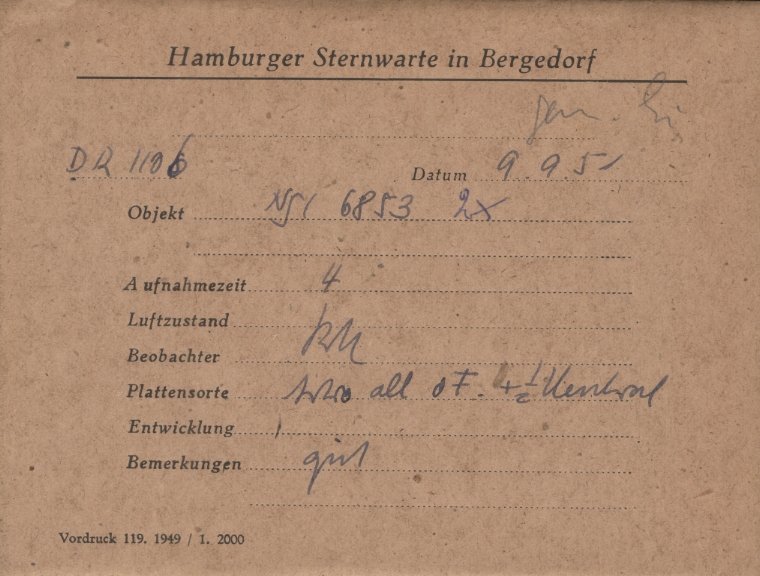 Hamburger Sternwarte in Bergedorf
DR 1106 Datum 9.9.51
Objekt NGC 6853 2x
Aufnahmezeit 4
Luftzustand
Beobachter
Plattensorte all o F. + 1/2
Entwicklung
Bemerkungen gut
Vordruck 119. 1949 / 1. 2000